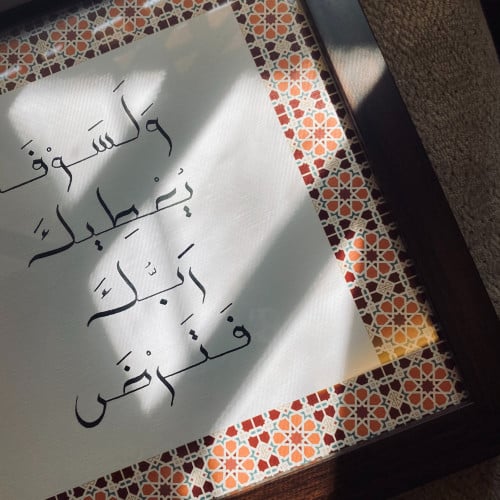 وَلَسَوْفَ
يُعْطِيكَ
رَبُّكَ
فَتَرْضَ